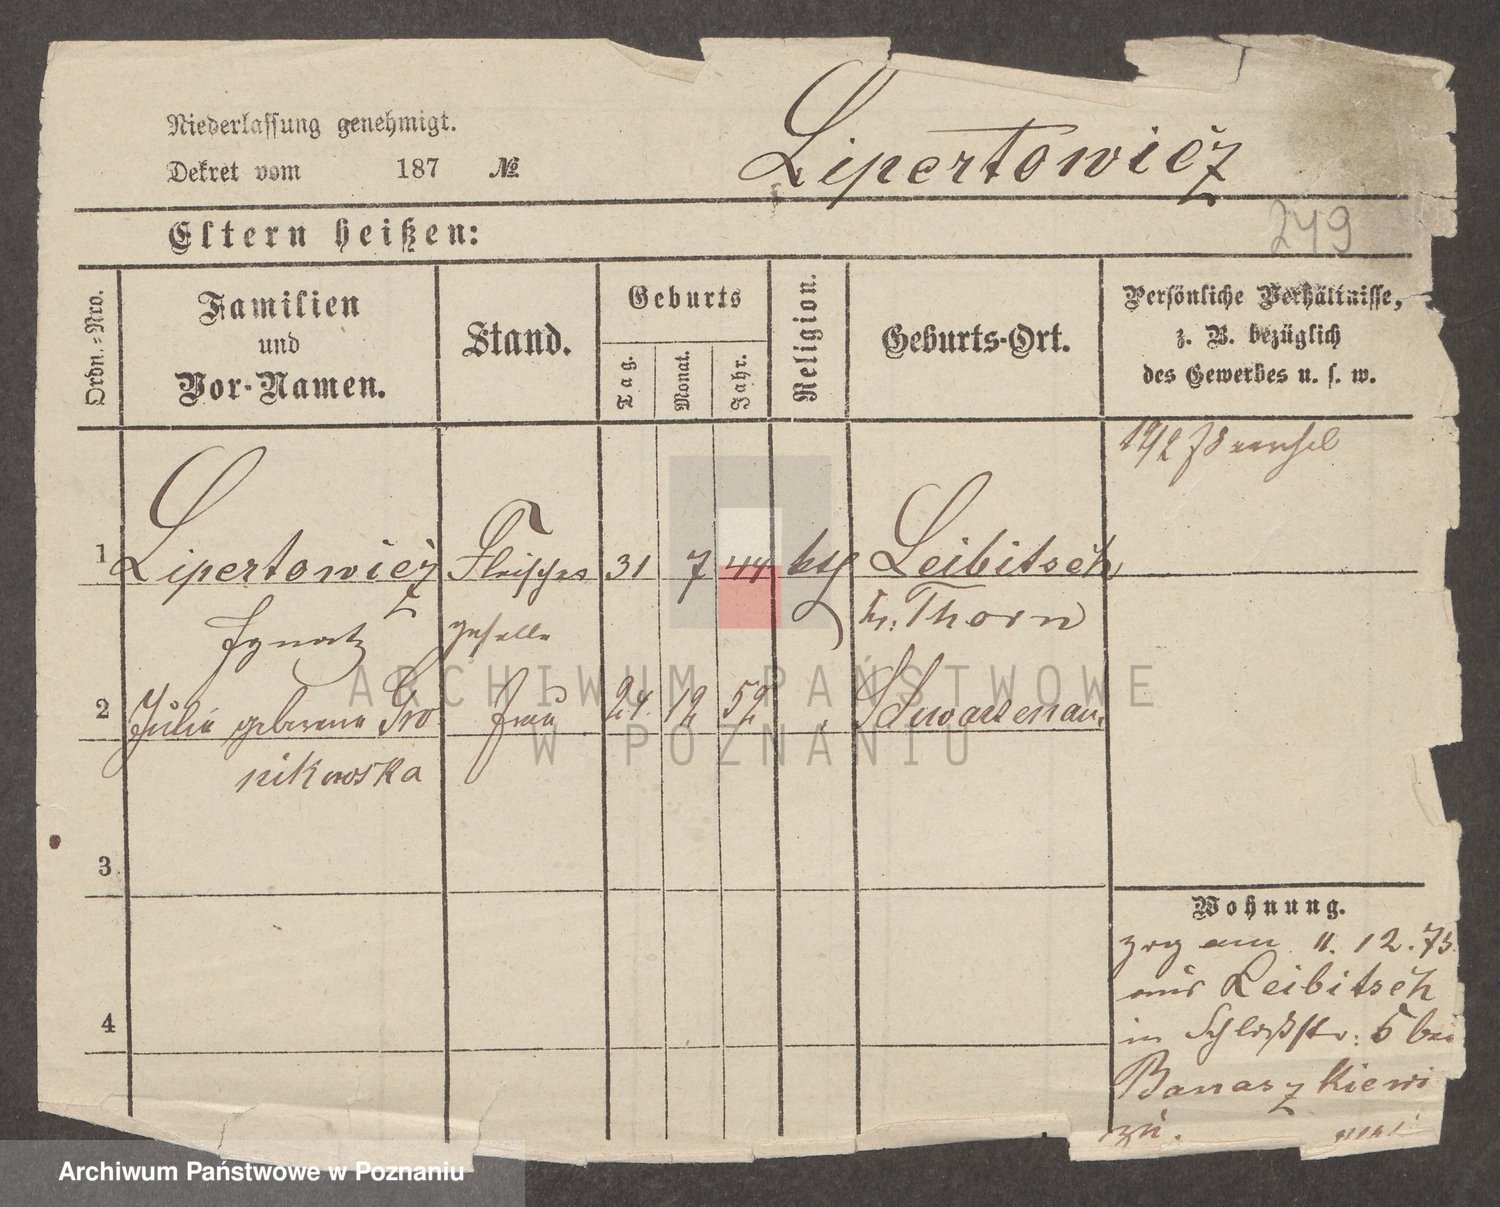 Niederlassung genehmigt.
Dekret vom 187 №
Lipertowicz
Eltern heißen:
249
Ordn.=Nro.
Familien
und
Vor-Namen.
Stand.
Geburts
Tag.
Monat.
Jahr.
Religion.
Geburts-Ort.
Persönliche Verhältnisse,
z. B. bezüglich
des Gewerbes u. s. w.
1 Lipertowicz Fleischer 31 7 44 kth Leibitsch
Ignatz geselle Kr. Thorn
2 Julie geborene Gro Frau 24 12 52 Schwarzenau
nikowska
3
4
Wohnung.
zog am 11. 12. 73
aus Leibitsch
in Schloßstr. 5 bei
Banaszkiewi
zu.
ARCHIWUM PAŃSTWOWE
W POZNANIU
Archiwum Państwowe w Poznaniu